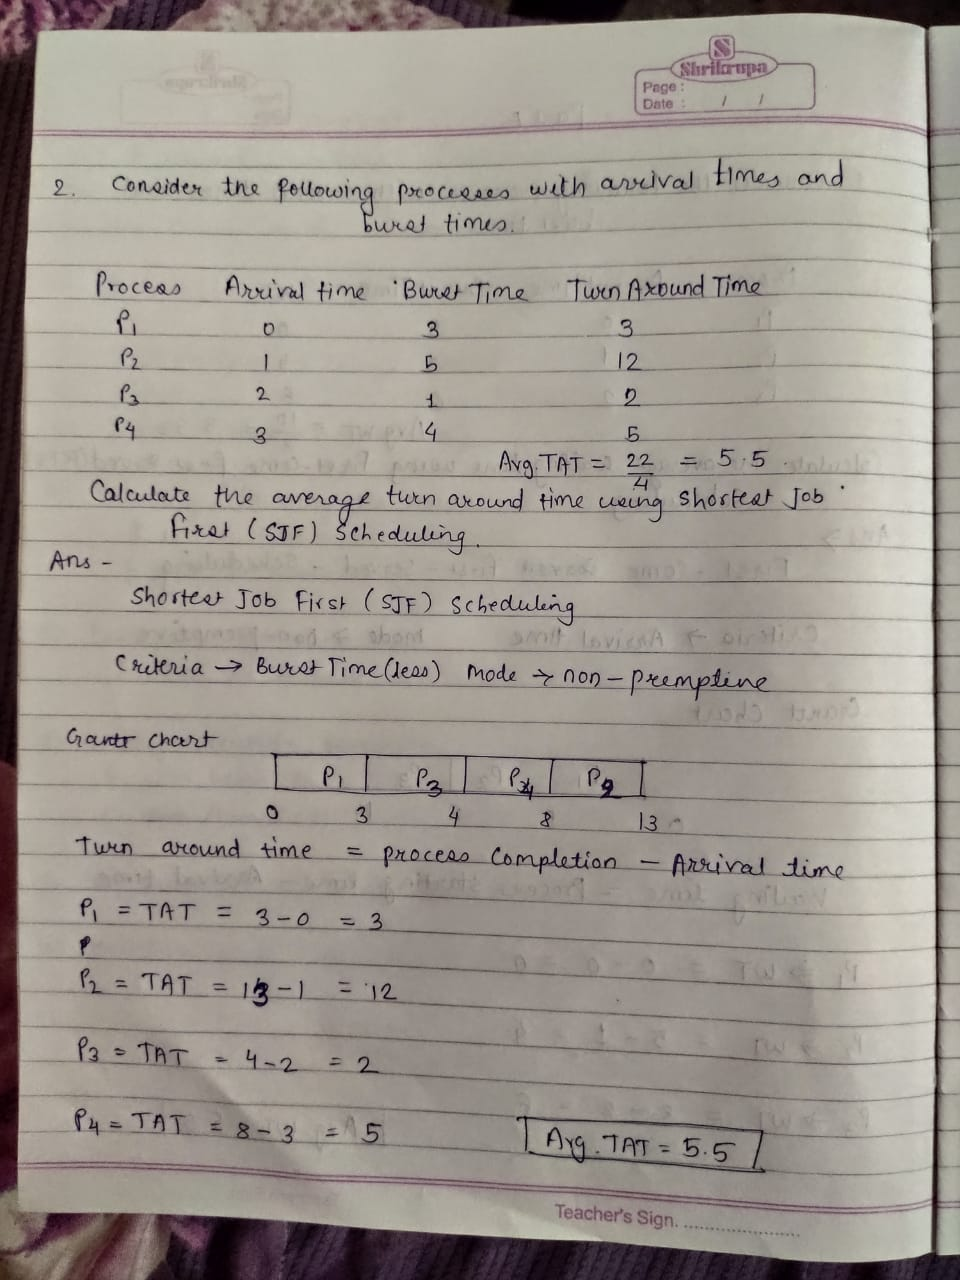 Shrikrupa
Page :
Date : / /
2. Consider the following processes with arrival times and
burst times.
Process Arrival time Burst Time Turn Around Time
P1 0 3 3
P2 1 5 12
P3 2 1 2
P4 3 4 5
Avg. TAT = 22/4 = 5.5
Calculate the average turn around time using Shortest Job
First (SJF) Scheduling.
Ans -
Shortest Job First (SJF) Scheduling
Criteria → Burst Time (less) Mode → non-preemptive
Gantt chart
P1 P3 P4 P2
0 3 4 8 13
Turn around time = process completion - Arrival time
P1 = TAT = 3-0 = 3
P
P2 = TAT = 13-1 = 12
P3 = TAT = 4-2 = 2
P4 = TAT = 8-3 = 5
Avg. TAT = 5.5
Teacher's Sign. ....................